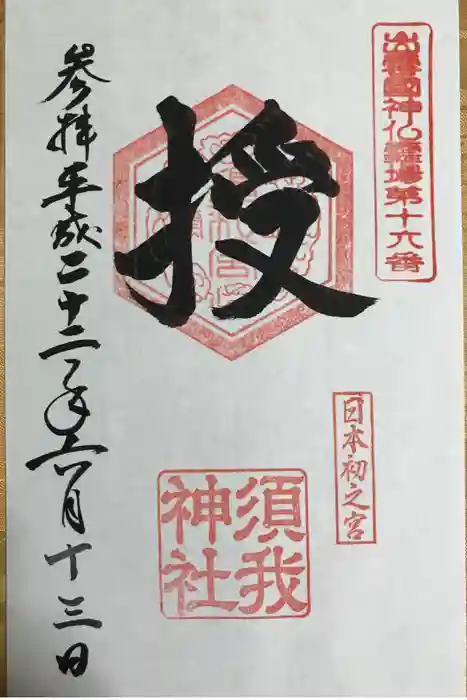 出雲國神仏霊場第十六番
日本初之宮
授
須我
神社
参拝平成二十二年六月十三日